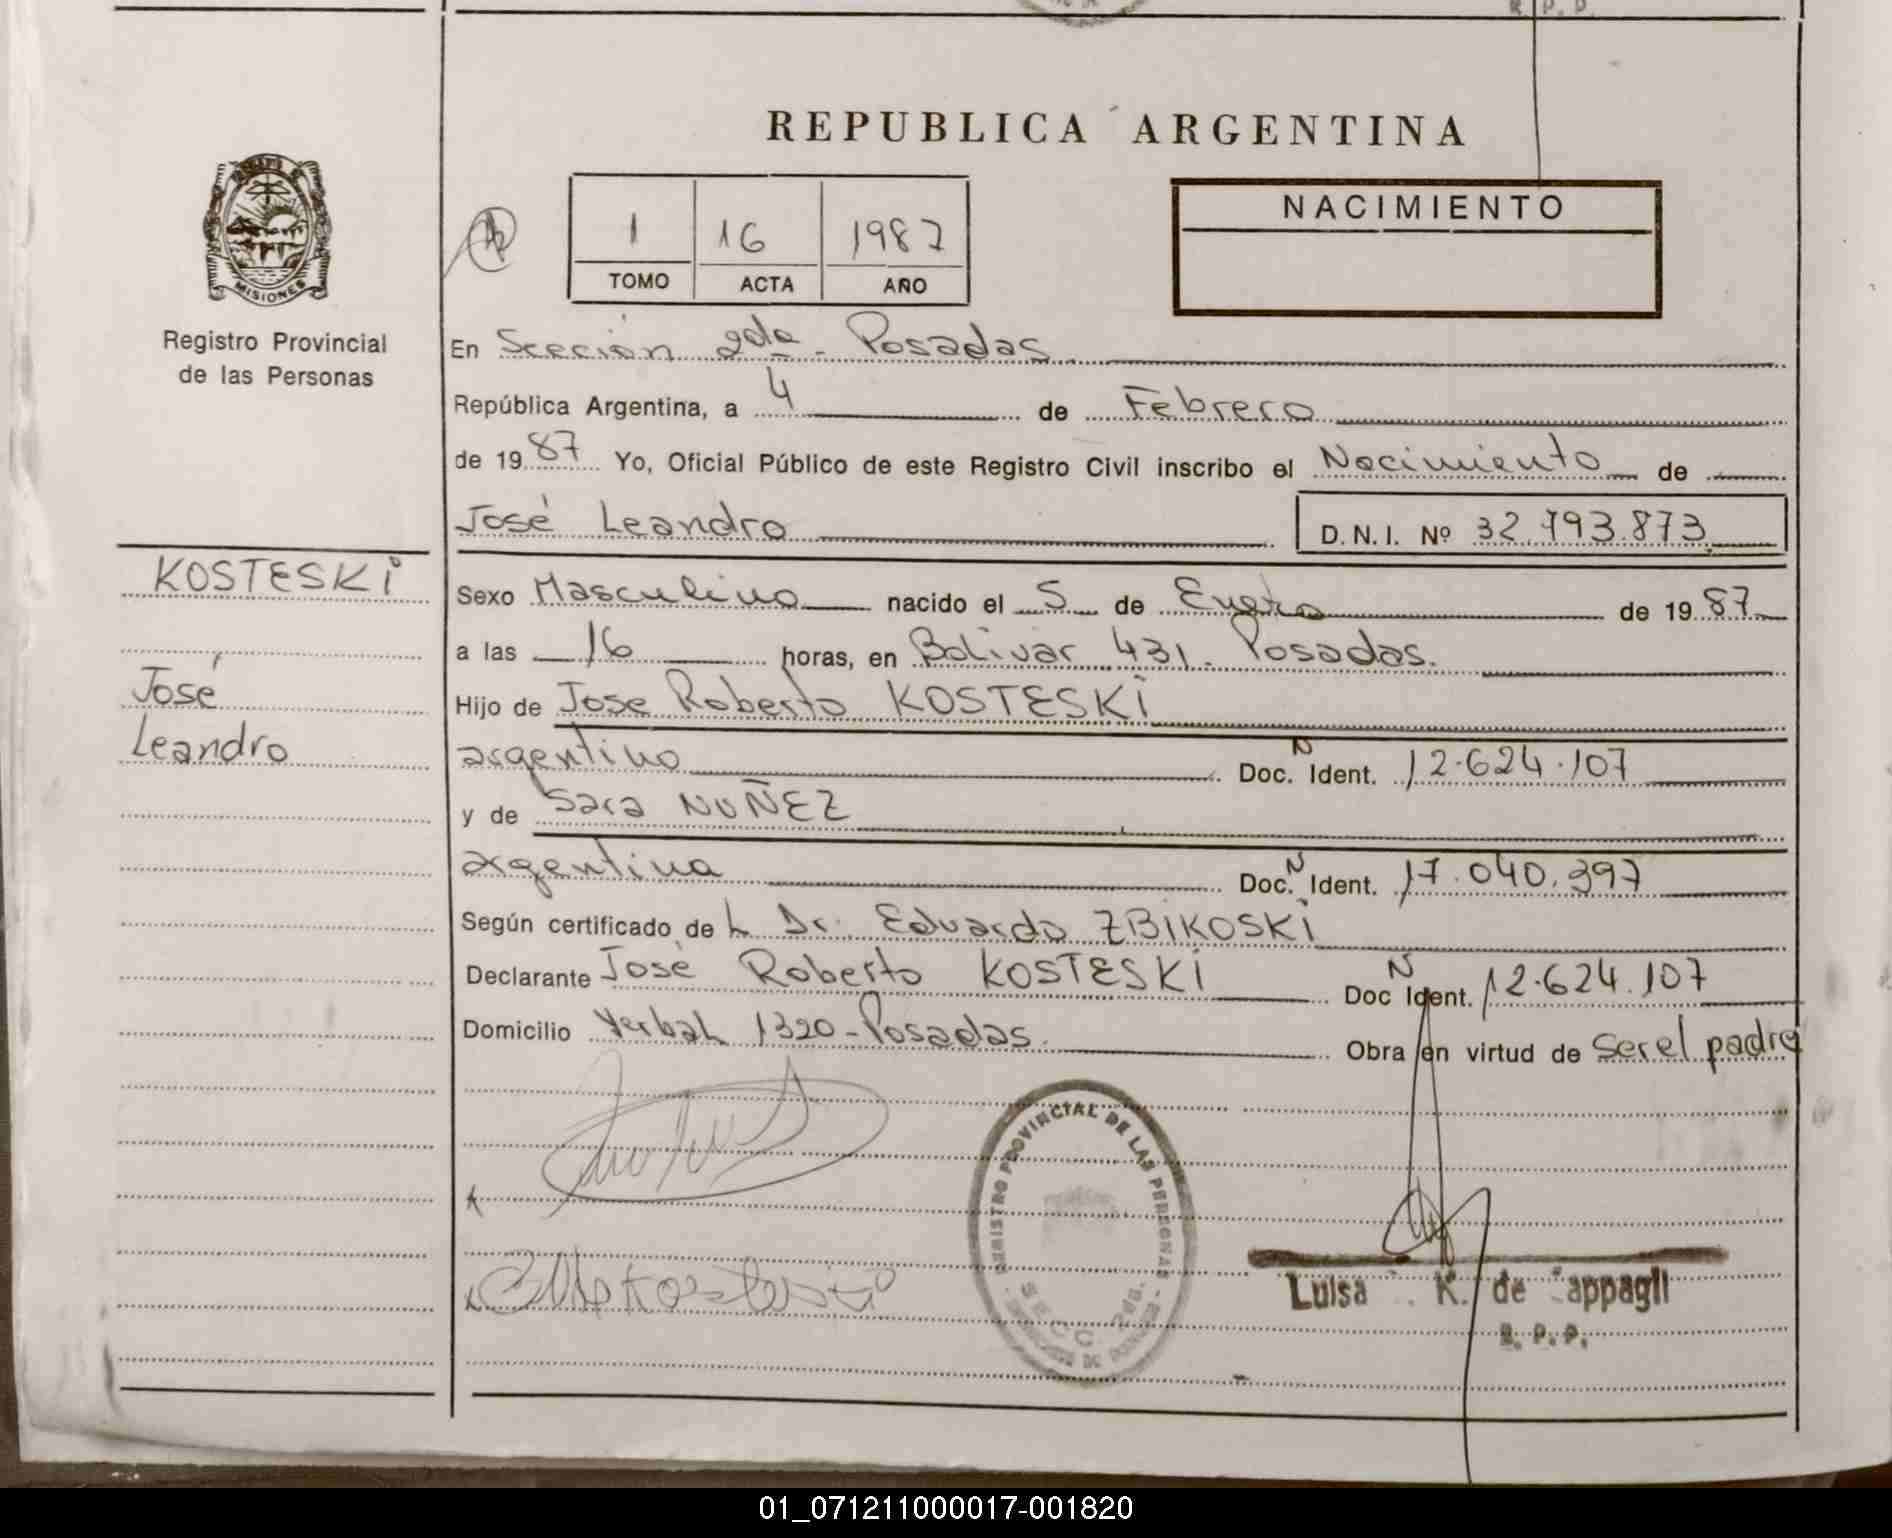 R. P. P.
REPUBLICA ARGENTINA
MISIONES
Registro Provincial
de las Personas
1 16 1987
TOMO ACTA AÑO
NACIMIENTO
En Sección 2da - Posadas
República Argentina, a 4 de Febrero
de 1987 Yo, Oficial Público de este Registro Civil inscribo el Nacimiento de
José Leandro D.N.I. Nº 32.793.873
KOSTESKI
José
Leandro
Sexo Masculino nacido el 5 de Enero de 1987
a las 16 horas, en Bolivar 431. Posadas.
Hijo de Jose Roberto KOSTESKI
argentino Doc. N Ident. 12.624.107
y de Sara NUÑEZ
argentina Doc. N Ident. 17.040.397
Según certificado de L Dr. Eduardo ZBIKOSKI
Declarante José Roberto KOSTESKI Doc N Ident. 12.624.107
Domicilio Yerbal 1320 - Posadas. Obra en virtud de Ser el padre
REGISTRO PROVINCIAL DE LAS PERSONAS
SECC. 2da.
Luisa K. de Cappagli
R. P. P.
01_071211000017-001820